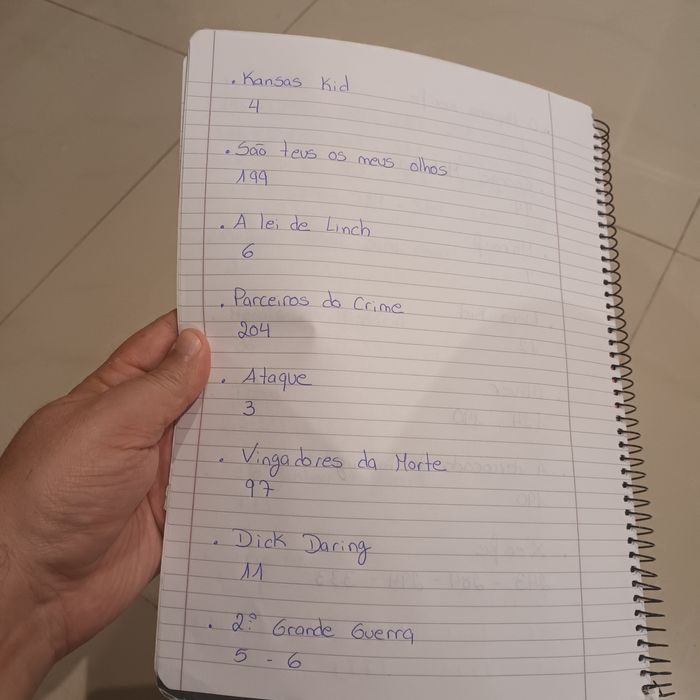 . Kansas Kid
4
. São teus os meus olhos
199
. A lei de Linch
6
. Parceiros do Crime
204
. Ataque
3
. Vingadores da Morte
97
. Dick Daring
11
. 2º Grande Guerra
5 - 6